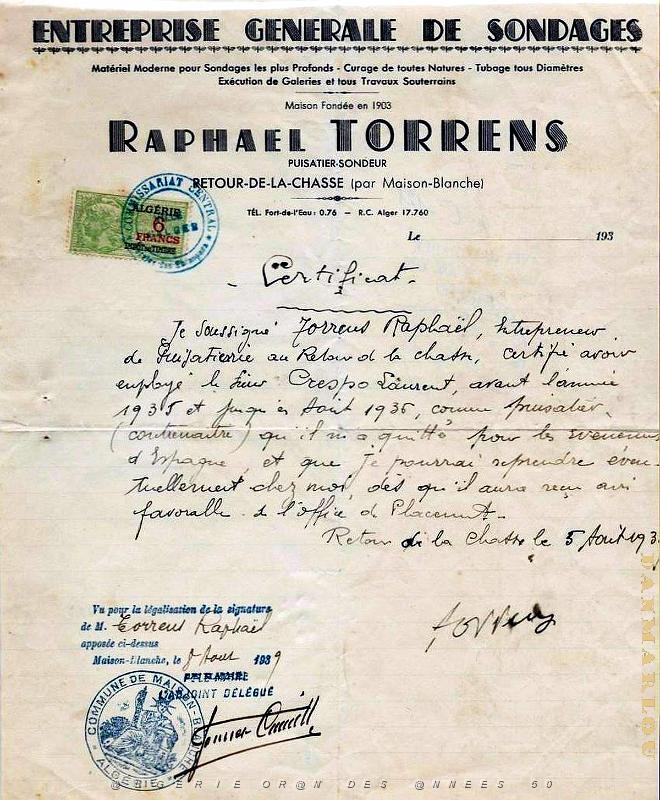 ENTREPRISE GENERALE DE SONDAGES
Matériel Moderne pour Sondages les plus Profonds - Curage de toutes Natures - Tubage tous Diamètres
Exécution de Galeries et tous Travaux Souterrains
Maison Fondée en 1903
RAPHAEL TORRENS
PUISATIER-SONDEUR
RETOUR-DE-LA-CHASSE (par Maison-Blanche)
TÉL. Fort-de-l'Eau : 0.76 — R.C. Alger 17.760
COMMISSARIAT CENTRAL
ALGÉRIE
6
FRANCS
Le 193
Certificat
Je soussigné Torrens Raphaël, Entrepreneur
de Puisatierie au Retour de la chasse, certifie avoir
employé le sieur Crespo Laurent, avant l'année
1935 et jusqu'en Août 1936, comme puisatier
(contremaître) qu'il m'a quitté pour les évènements
d'Espagne, et que je pourrai reprendre éven-
tuellement chez moi, dès qu'il aura reçu avis
favorable de l'office de Placement.
Retour de la Chasse le 5 Août 193
Torrens
Vu pour la légalisation de la signature
de M. Torrens Raphaël
apposée ci-dessus
Maison-Blanche, le 8 Aout 1939
L'ADJOINT DÉLÉGUÉ
COMMUNE DE MAISON-BLANCHE
ALGÉRIE
DANMARLOU
@LGERIE OR@N DES @NNEES 50